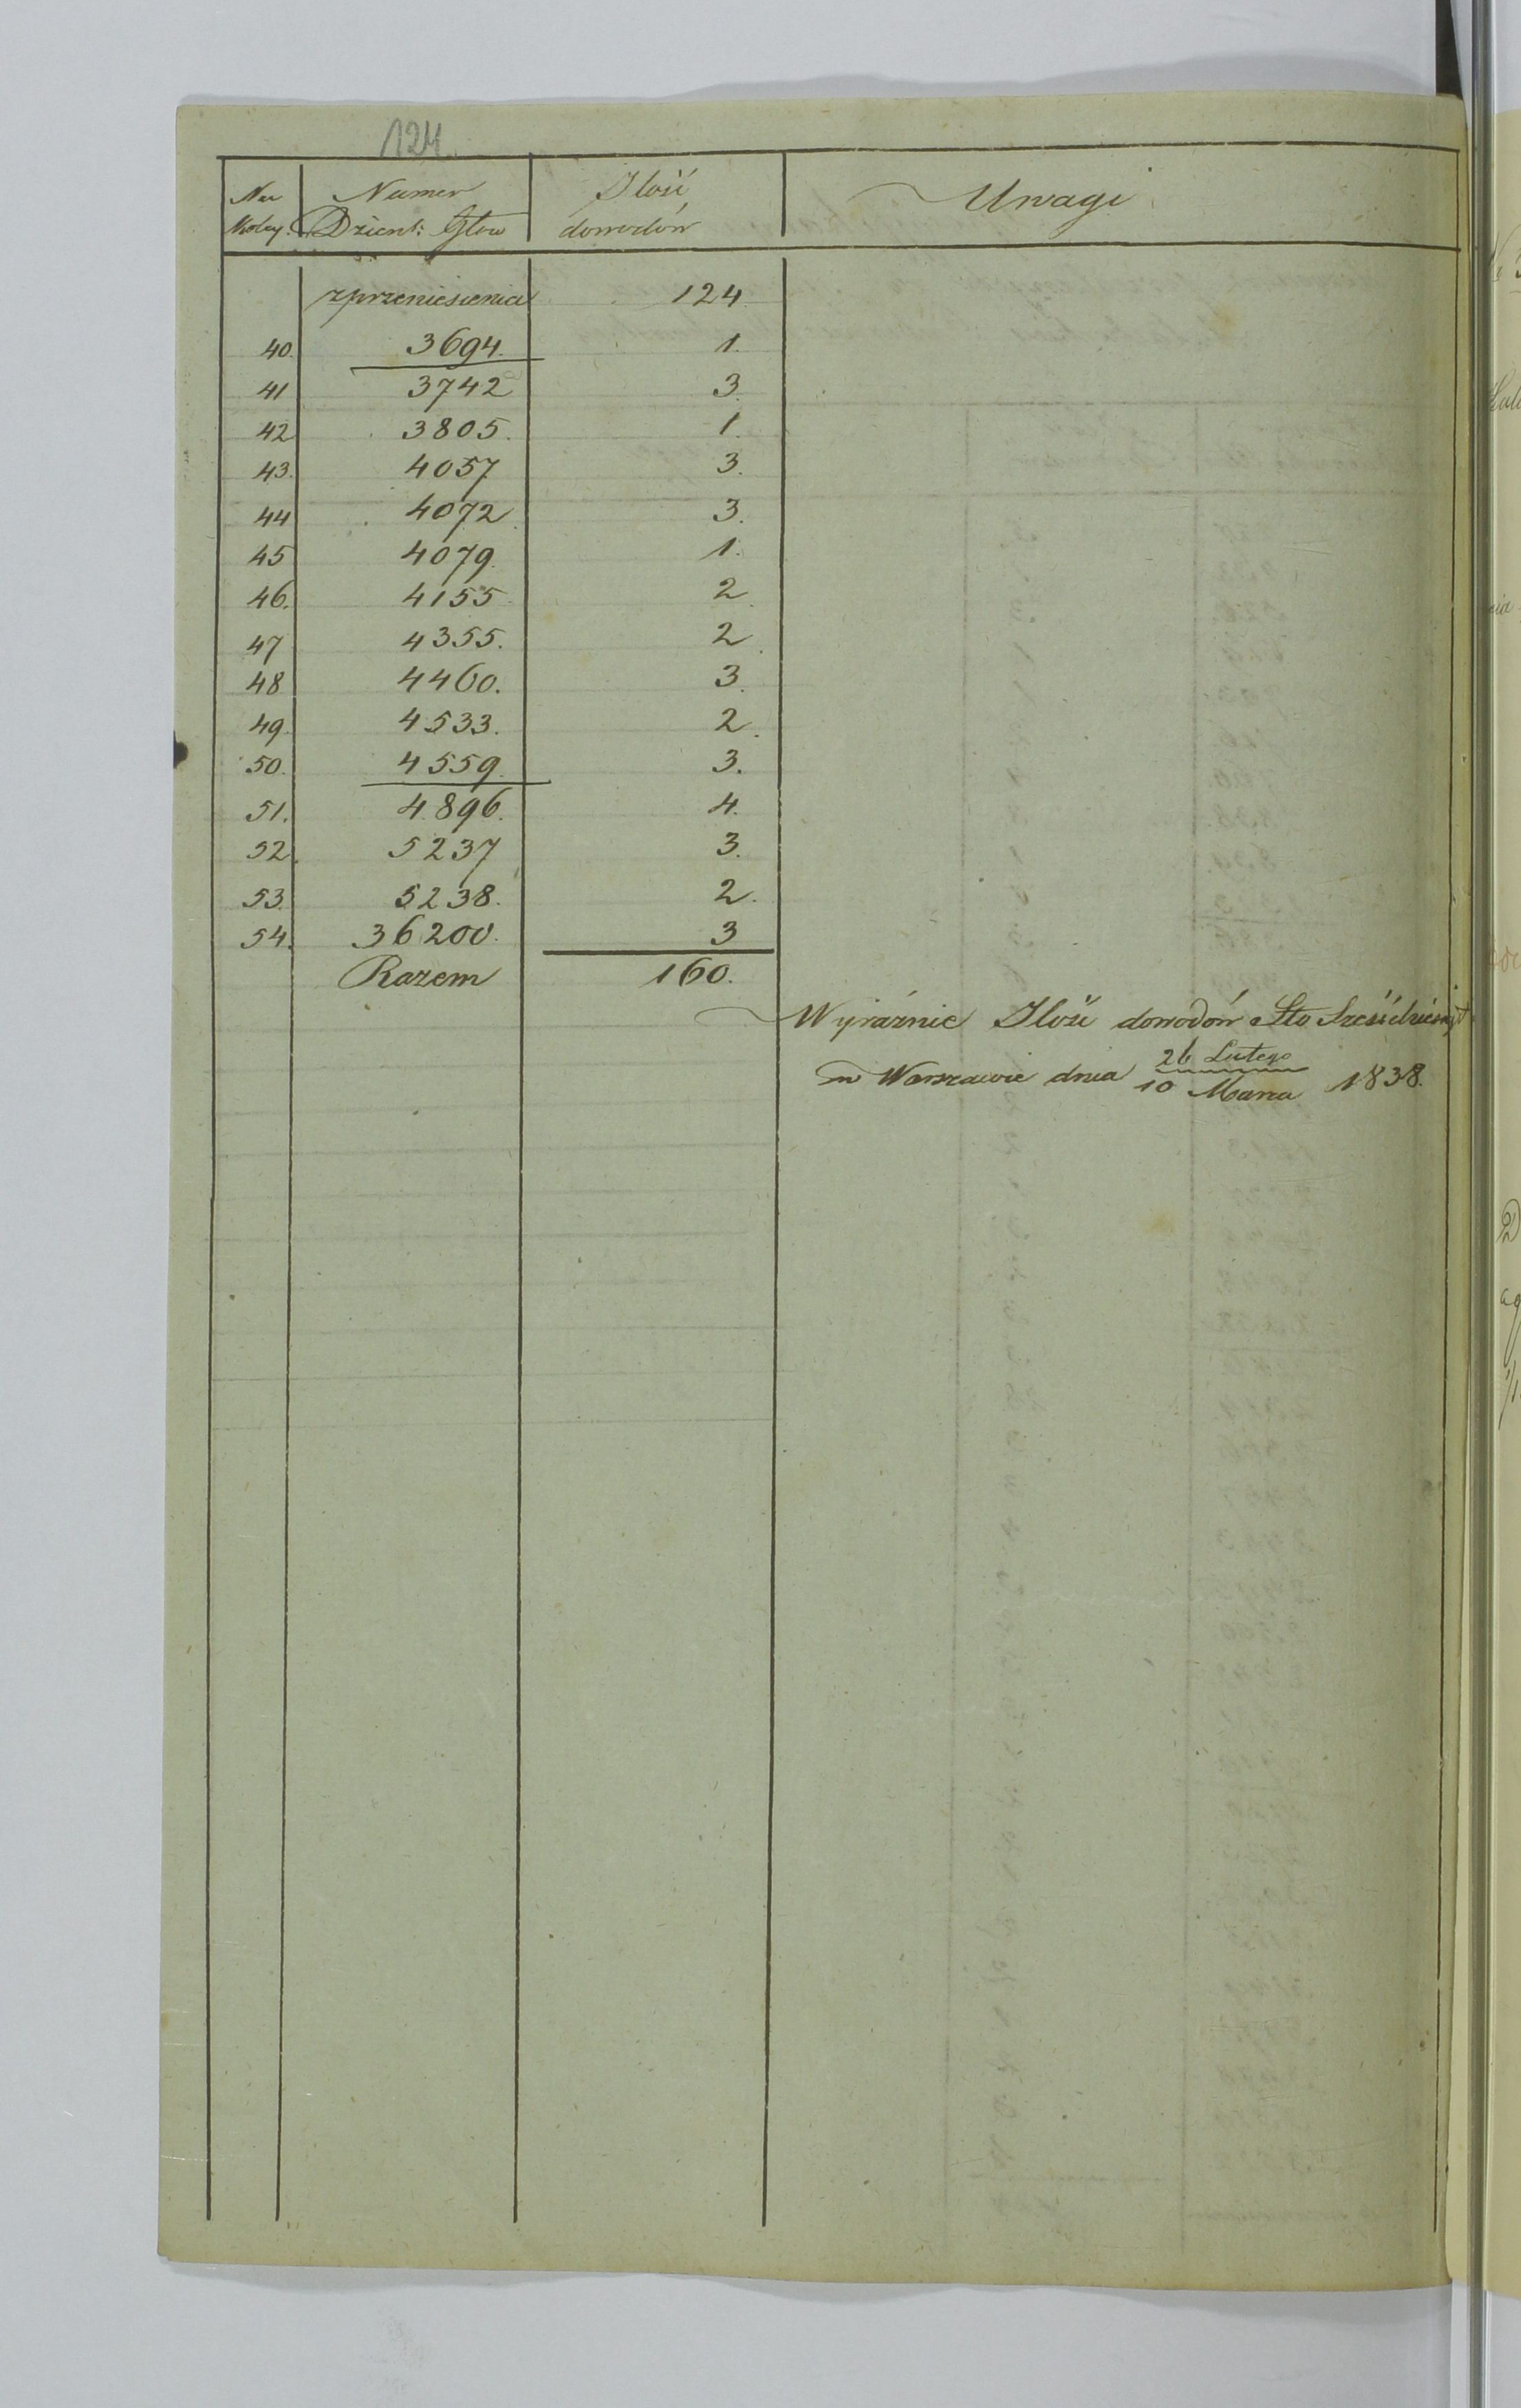 124
Nr Koley. Numer Dzient: Głow Ilość dowodów Uwagi
z przeniesienia 124
40. 3694. 1.
41 3742 3.
42 3805. 1.
43. 4057 3.
44 4072 3.
45 4079. 1.
46. 4155 2.
47 4355. 2.
48 4460. 3.
49. 4533. 2.
50. 4559. 3.
51. 4896. 4.
52. 5237 3.
53. 5238. 2.
54. 36200. 3
Razem 160.
Wyraźnie Ilość dowodów Sto Sześćdziesiąt
w Warszawie dnia 26 Lutego / 10 Marca 1838.